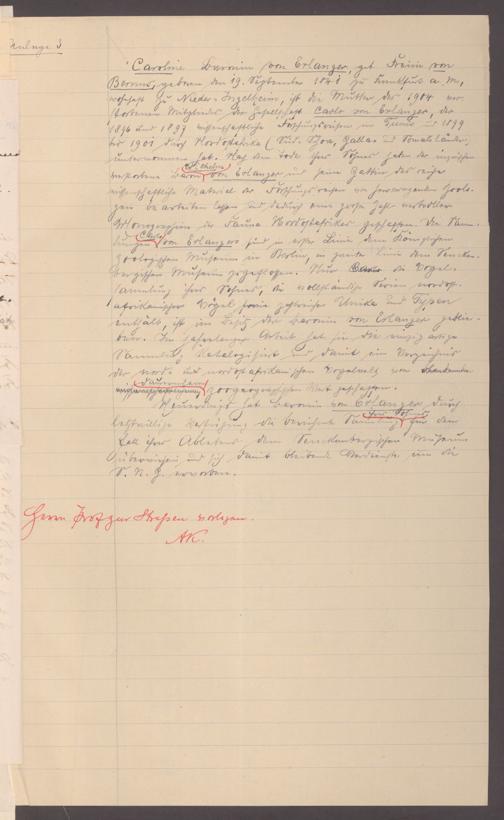 Anlage 3
Caroline Baronin von Erlanger, geb. Freiin von
Bernus, geboren den 19. September 184 zu Frankfurt a. M.,
wohnhaft zu Nieder-Ingelheim, ist die Mutter des 1904 ver-
storbenen Mitgliedes der Gesellschaft Carlo von Erlanger, der
1896 und 1897 wissenschaftliche Forschungsreisen in Tunis und 1899
bis 1901 durch Nordostafrika (Süd-Schoa, Galla- und Somaliländer)
unternommen hat. Nach dem Tode ihres Sohnes haben der inzwischen
verstorbene Baron Wilhelm von Erlanger und seine Gattin das reiche
wissenschaftliche Material der Forschungsreisen von hervorragenden Zoolo-
gen bearbeiten lassen und dadurch eine große Zahl wertvoller
Monographien der Fauna Nordostafrikas geschaffen. Die Samm-
lungen Carlo von Erlangers sind in erster Linie dem Königlichen
Zoologischen Museum in Berlin, in zweiter Linie dem Sencken-
bergischen Museum zugeflossen. Nur die Vogel-
sammlung ihres Sohnes, die vollständige Serien nordost-
afrikanischer Vögel sowie zahlreiche Unika und Typen
enthält, ist im Besitz der Baronin von Erlanger geblie-
ben. In jahrelanger Arbeit hat sie die einzigartige
Sammlung katalogisiert und damit ein Verzeichnis
der nord- und nordostafrikanischen Vogelwelt von
dauerndem zoogeographischen Wert geschaffen.
Neuerdings hat Baronin von Erlanger durch
letztwillige Verfügung die berühmte Sammlung ihres Sohnes für den
Fall ihres Ablebens dem Senckenbergischen Museum
überwiesen und sich damit bleibende Verdienste um die
S. N. G. erworben.
Herrn Prof. zur Strassen vorlegen.
AK.